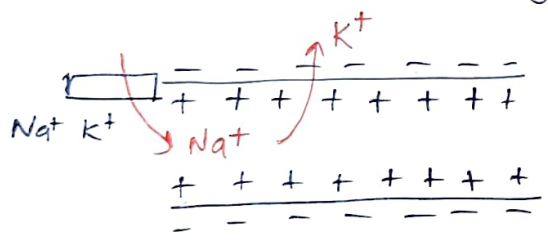 K⁺
− − − − − − −
+ + + + + + + +
Na⁺ K⁺
Na⁺
+ + + + + + + +
− − − − − − −